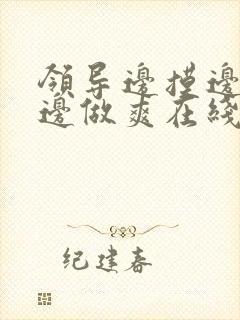 領导邊摸邊
邊做爽在綫
纪建春